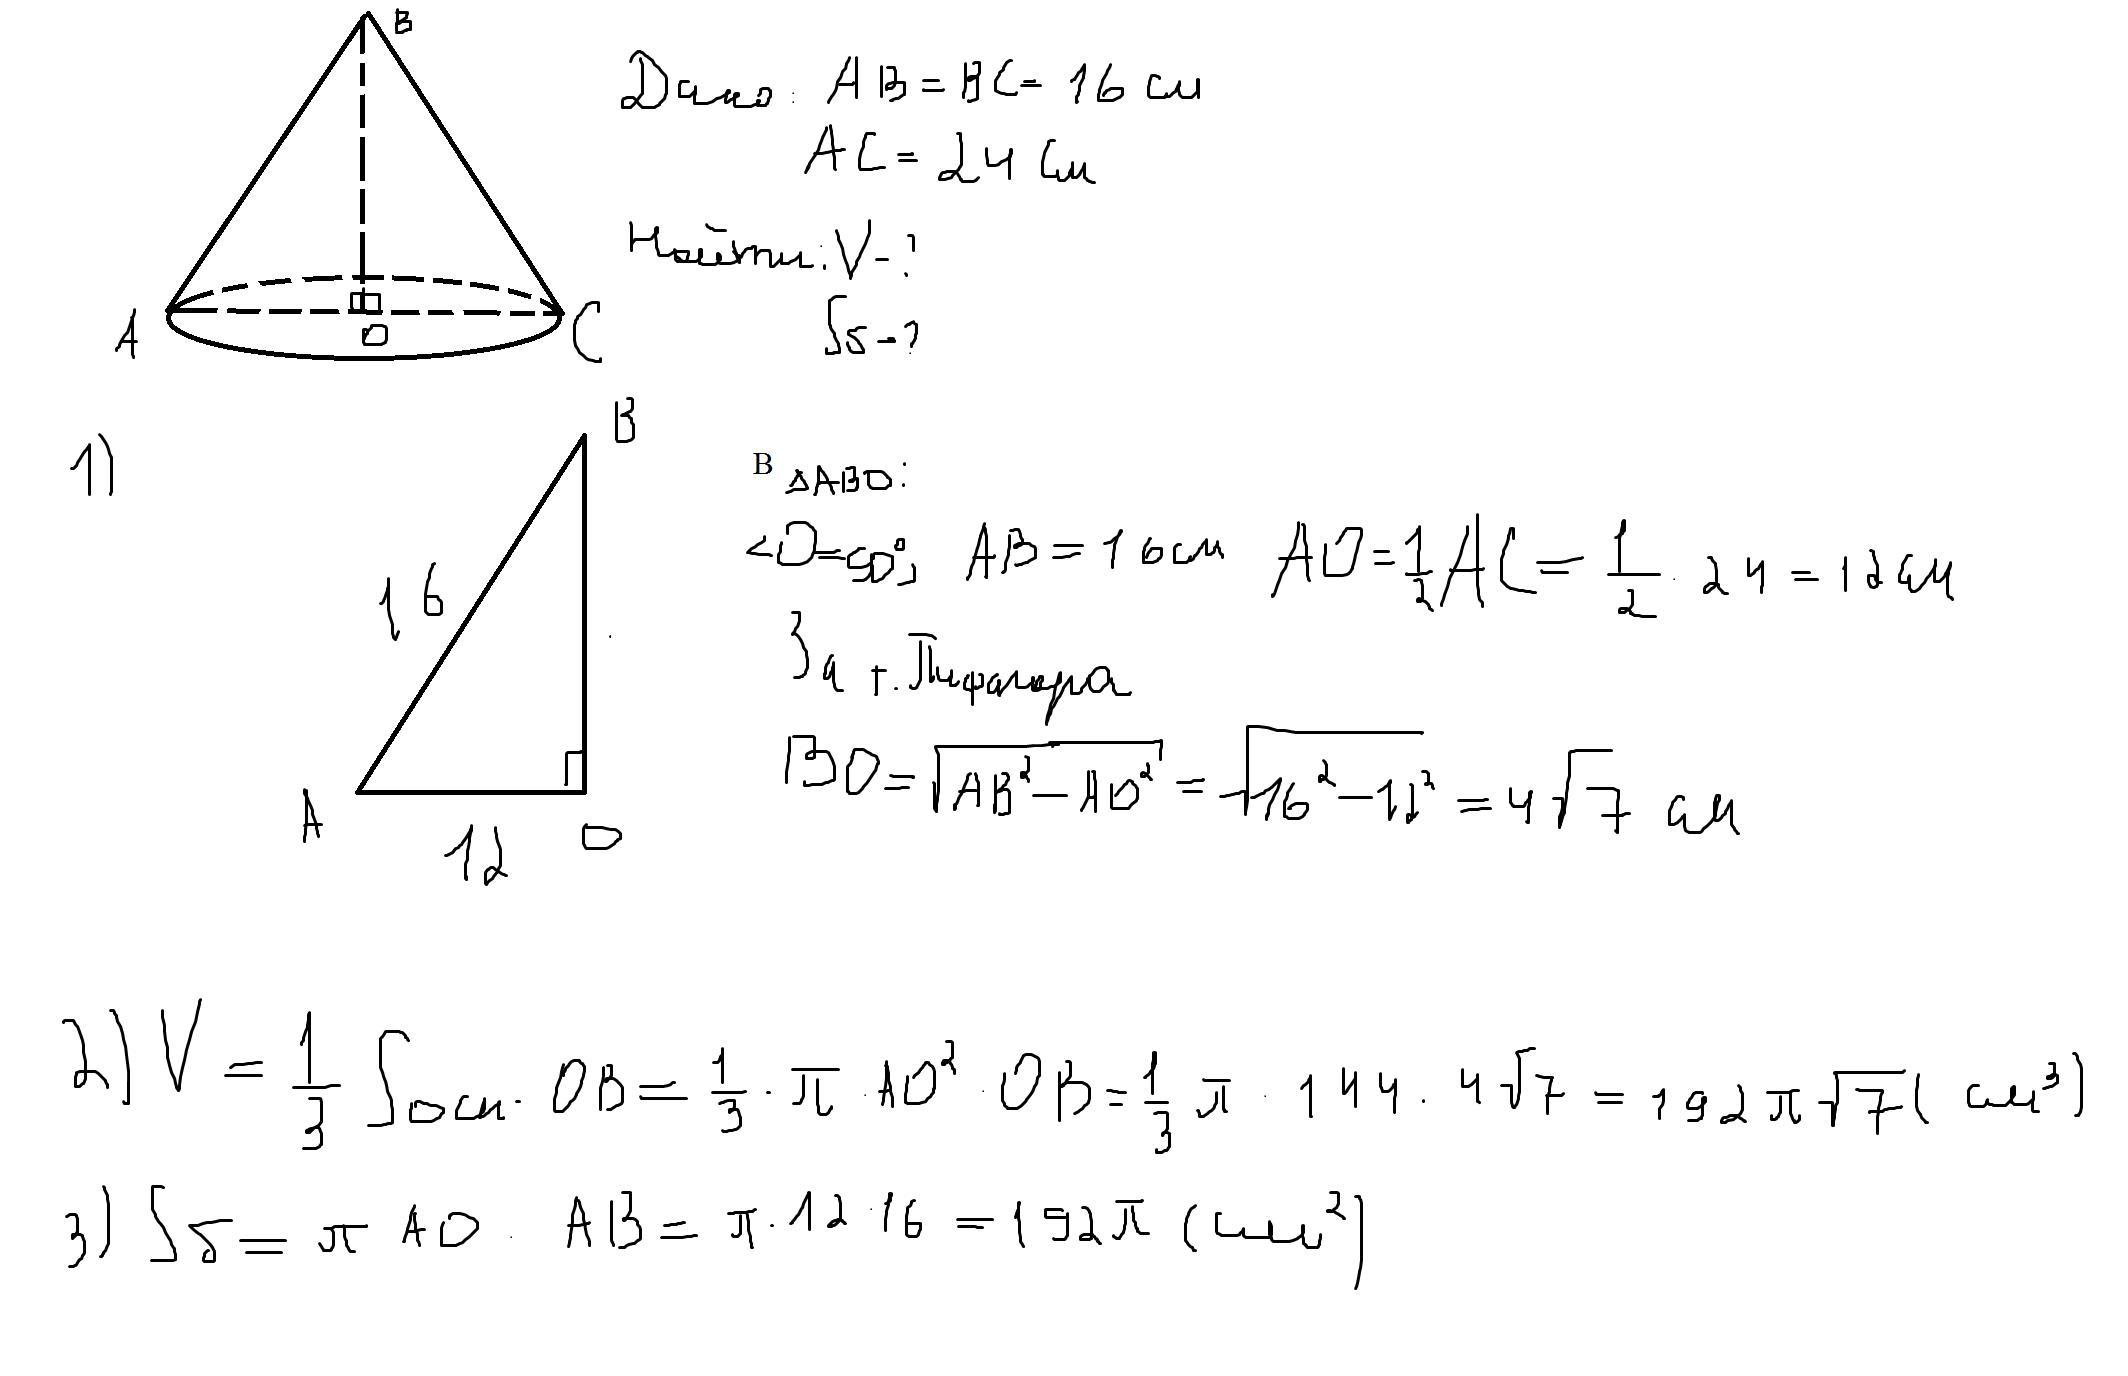 B
A
O
C
Дано: AB = BC = 16 см
AC = 24 см
Найти: V - ?
Sб - ?
1)
B
16
A
12
O
В △ABO:
<O=90°; AB = 16 см AO = 1/2 AC = 1/2 · 24 = 12 см
За т. Пифагора
BO = √(AB² − AO²) = √(16² − 12²) = 4√7 см
2) V = 1/3 Sосн · OB = 1/3 · π · AO² · OB = 1/3 π · 144 · 4√7 = 192π√7 (см³)
3) Sб = π AO · AB = π · 12 · 16 = 192π (см²)